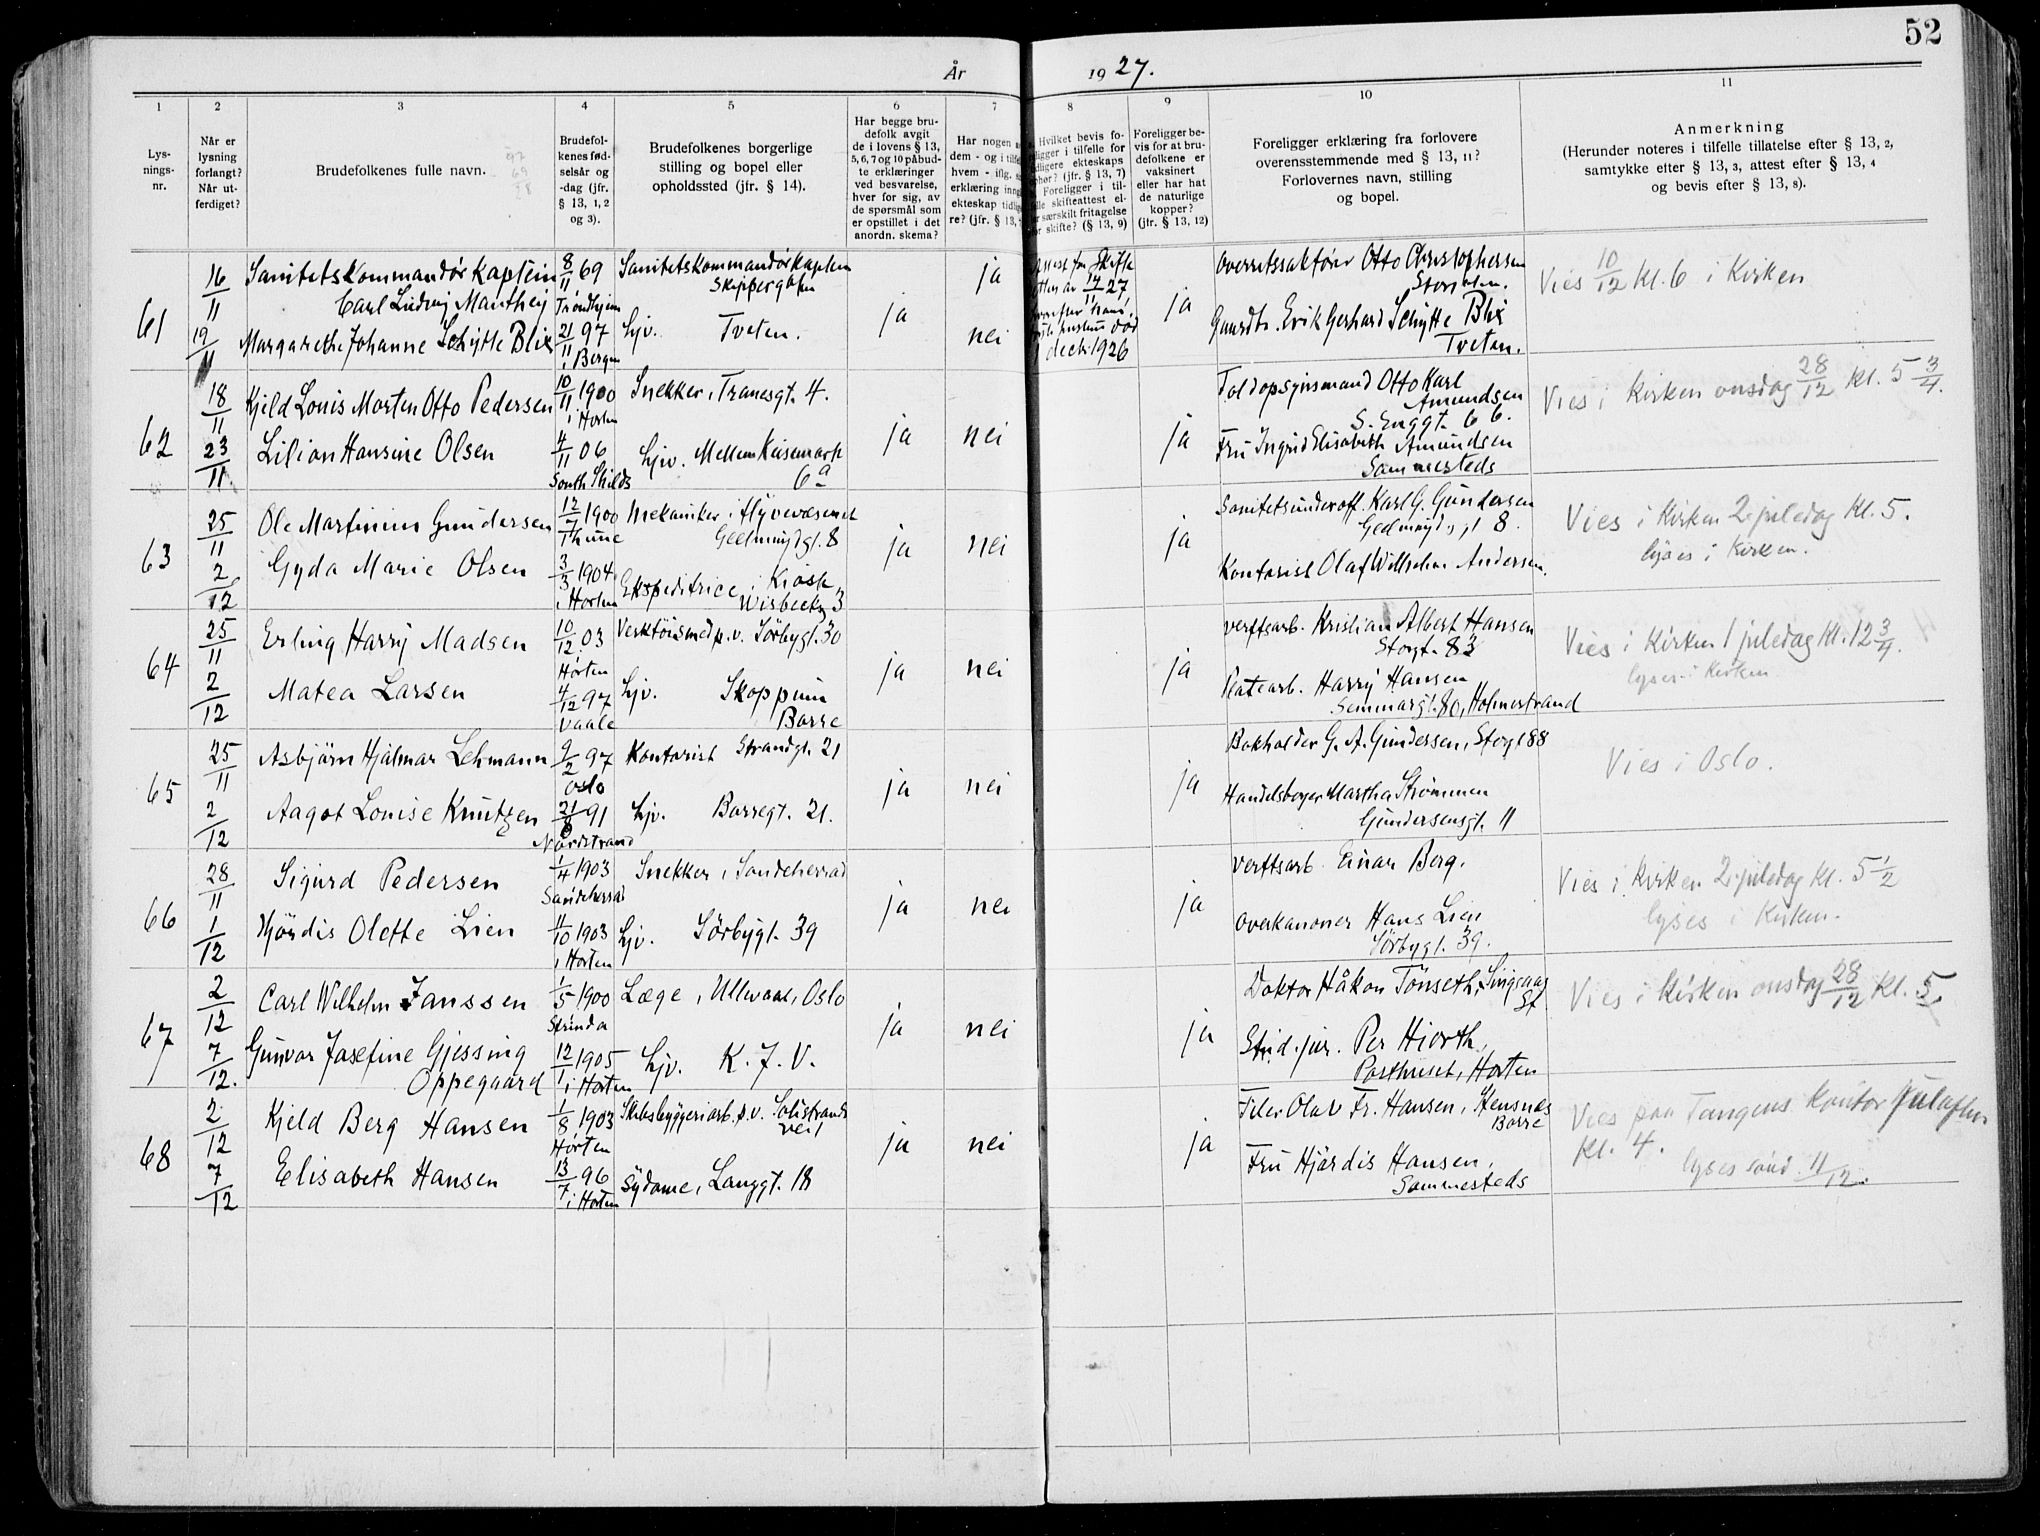 52
År 1927.
1 2 3 4 5 6 7 8 9 10 11
Lys-
nings-
nr.
Når er
lysning
forlangt?
Når ut-
ferdiget?
Brudefolkenes fulle navn.
Brudefol-
kenes fød-
selsår og
-dag (jfr.
§ 13, 1, 2
og 3).
Brudefolkenes borgerlige
stilling og bopel eller
opholdssted (jfr. § 14).
Har begge bru-
defolk avgit
de i lovens § 13,
5, 6, 7 og 10 påbud-
te erklæringer
ved besvarelse,
hver for sig, av
de spørsmål som
er opstillet i det
anordn. skema?
Har nogen
dem - og i tilfe
hvem - iflg.
erklæring inng
ekteskap tidlig
re? (jfr. § 13,
Hvilket bevis fo-
religger i tilfelle for
tidligere ekteskaps
ophør? (jfr. § 13, 7)
Foreligger i til-
felle skifteattest el-
ler særskilt fritagelse
for skifte? (§ 13, 9)
Foreligger be-
vis for at bru-
defolkene er
vaksinert
eller har hat
de naturlige
kopper?
(jfr. § 13, 12)
Foreligger erklæring fra forlovere
overensstemmende med § 13, 11?
Forlovernes navn, stilling
og bopel.
Anmerkning
(Herunder noteres i tilfelle tillatelse efter § 13, 2,
samtykke efter § 13, 3, attest efter § 13, 4
og bevis efter § 13, 8).
61
16/11
19/11
Sanitetskommandørkaptein
Carl Ludvig Manthey
Margarethe Johanne Schytte Blix
8/11 69
Trondhjem
21/11 97
i Bergen
Sanitetskommandørkaptein
Skippergaten
hjv. Tveten.
ja
ja
nei
Attest fra Skifte
retten av 17/11 27
hustru død
deck. 1926
ja
Overretssakfører Otto Christophersen
Storgaten.
Gaardbr. Erik Gerhard Schytte Blix
Tveten.
Vies 10/12 kl. 6 i Kirken
62
18/11
23/11
Kjeld Louis Morten Otto Pedersen
Lilian Hansine Olsen
10/11 1900
i Horten
4/11 06
South Shilds
Snekker, Tranesgt. 4.
hjv. Mellem Keisemark
6a
ja
nei
ja
Toldopsynsmand Otto Karl
Amundsen
S. Enggt. 6 b.
Fru Ingrid Elisabeth Amundsen
Sammesteds
Vies i Kirken onsdag 28/12 kl. 5 3/4.
63
25/11
2/12
Ole Martinius Gundersen
Gyda Marie Olsen
12/7 1900
Thune
3/3 1904
i Horten
Mekaniker i flyvevæsenet
Gedmundgt. 8
Ekspeditrice i Kiosk
Wisbecks 3
ja
nei
ja
Sanitetsunderoff. Karl G. Gundersen
8.
Kontorist Olaf Wilhelm Andersen.
Vies i Kirken 2. juledag kl. 5.
lyses i Kirken.
64
25/11
2/12
Erling Harry Madsen
Matea Larsen
10/12 03
Horten
4/12 97
Vaale
Verktöismed p.v. Sörbygt. 30
hjv. Skoppum
Borre
ja
nei
ja
Verftsarb. Kristian Albert Hansen
Storgt. 83
Platearb. Harry Hansen
80, Holmestrand
Vies i Kirken 1 juledag kl. 12 3/4.
lyses i Kirken
65
25/11
2/12
Asbjørn Hjalmar Lehmann
Aagot Louise Knutzen
9/2 97
Oslo
21/8 91
Nordstrand
Kontorist Strandgt. 21
hjv. Borregt. 21.
ja
nei
ja
Bokholder G. A. Gundersen, Storgt 88
Handelsborger Martha Strømmen
Gundersensgt. 11
Vies i Oslo.
66
28/11
1/12
Sigurd Pedersen
Hjördis Olette Lien
1/4 1903
Sandeherad
11/10 1903
i Horten
Snekker, Sandeherrad
hjv. Sörbygt. 39
ja
nei
ja
Verftsarb. Einar Berg.
Overkanoner Hans Lien
Sörbygt. 39.
Vies i Kirken 2. juledag kl. 5 1/2
lyses i Kirken.
67
2/12
7/12.
Carl Wilhelm Janssen
Gunvor Josefine Gjessing
Oppegaard
1/5 1900
Strinda
12/1 1905
i Horten
Læge, Ullevaal, Oslo
hjv. K. J. V.
ja
nei
ja
Doktor Håkon Tönseth, Singsaag
St.
Stud. jur. Per Hjorth,
Posthuset, Horten
Vies i Kirken onsdag 28/12 kl. 5.
68
2/12
7/12
Kjeld Berg Hansen
Elisabeth Hansen
1/8 1903
Horten
13/7 96
i Horten
Skibsbyggeriarb. p.v. Solistrands
vei 1
Sydame, Langgt. 18
ja
nei
ja
Filer Olav Fr. Hansen, Stensnæs
Borre
Fru Hjørdis Hansen,
Sammesteds
Vies paa Tangens Kontor Julaften
kl. 4.
lyses sönd. 11/12.